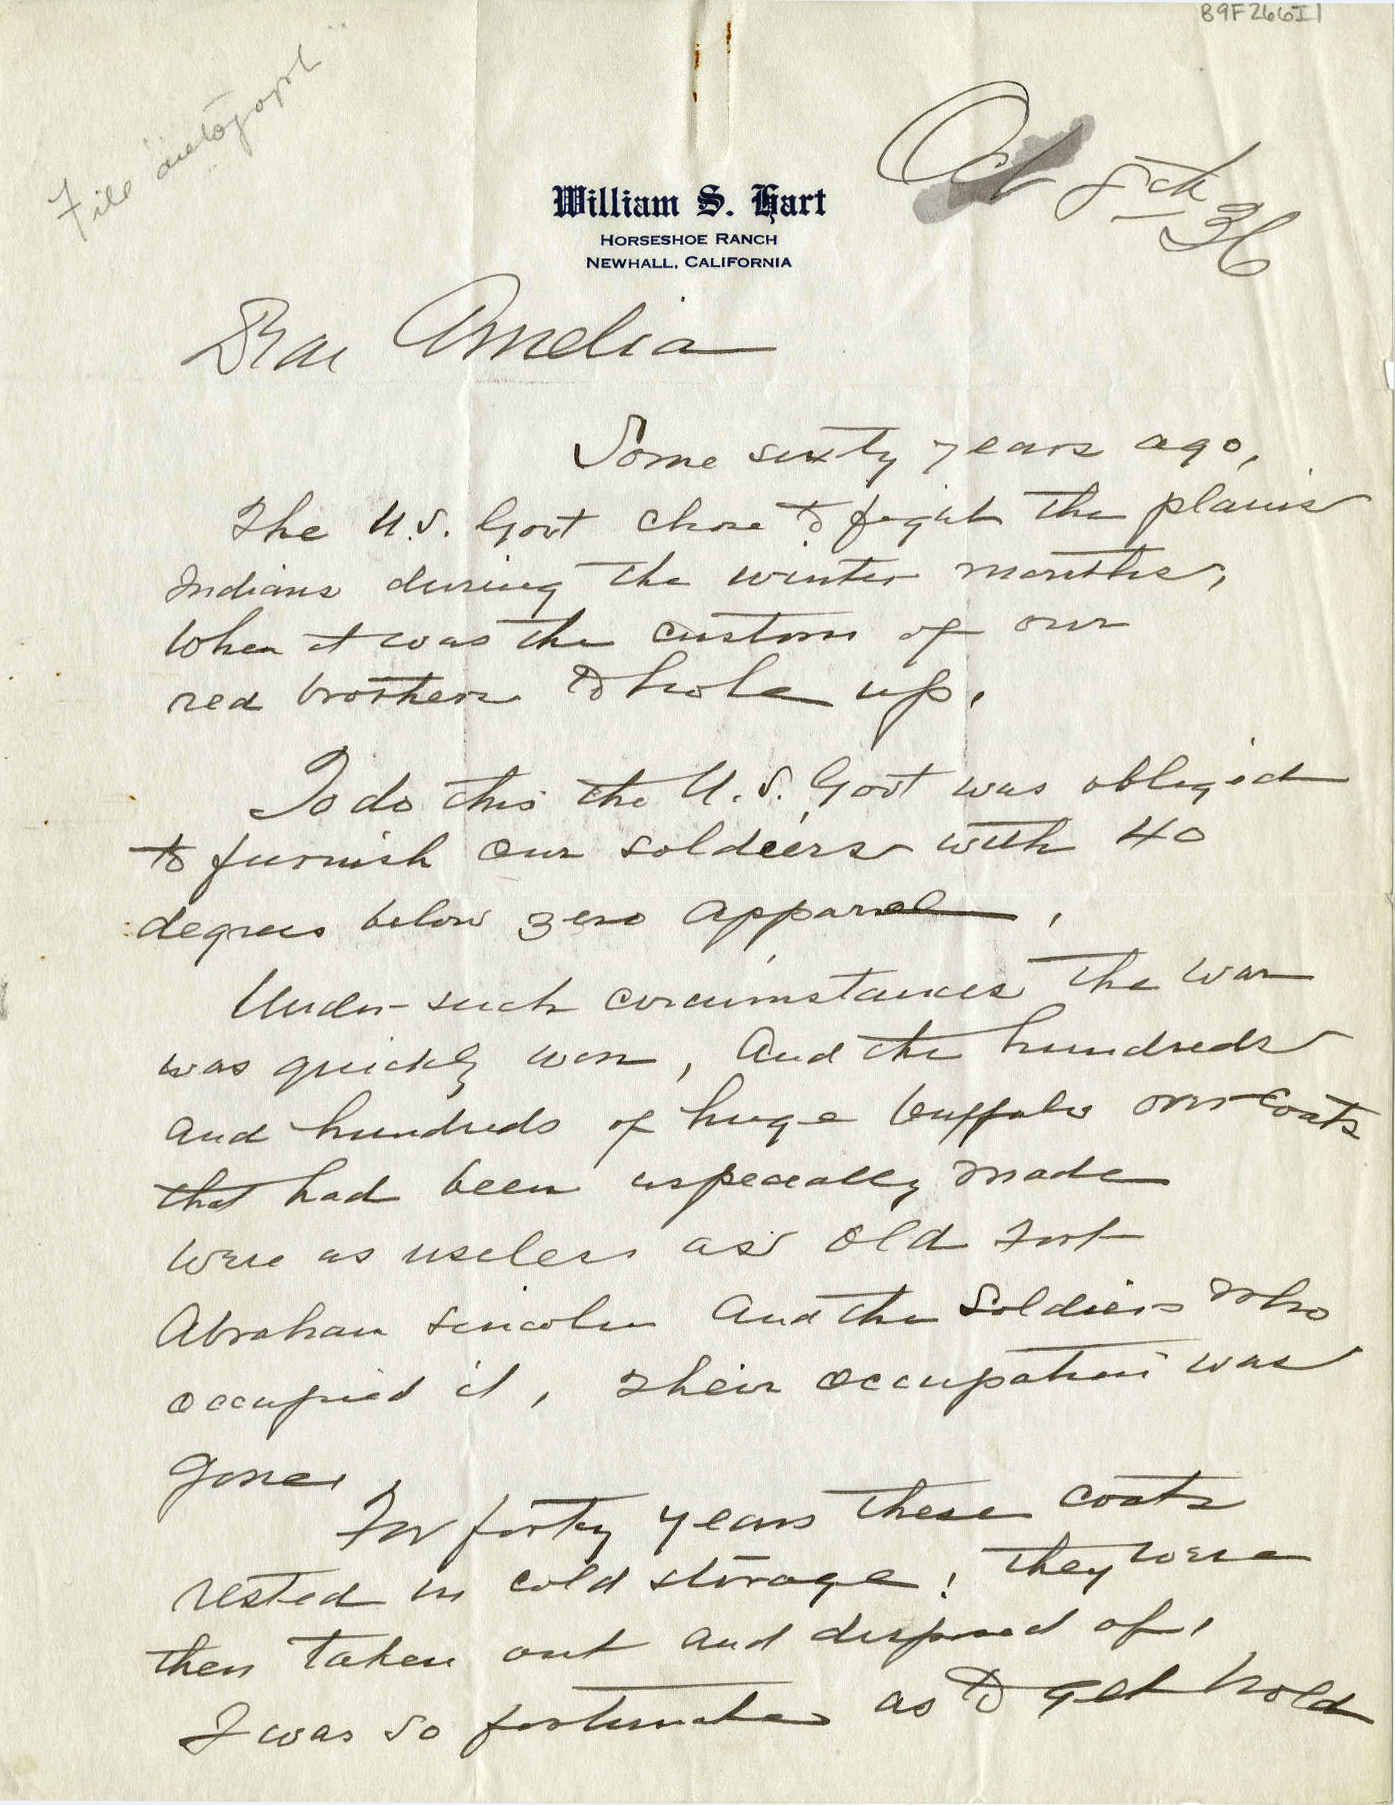 B9F266I1
File "autograph"
Oct 8th
—36
William S. Hart
HORSESHOE RANCH
NEWHALL, CALIFORNIA
Dear Amelia
Some sixty years ago,
The U.S. Govt chose to fight the plains
Indians during the winter months,
When it was the custom of our
red brothers to hole up.
To do this the U.S. Govt was obliged
to furnish our soldiers with 40
degrees below zero apparel.
Under such circumstances the war
was quickly won, And the hundreds
and hundreds of huge buffalo overcoats
that had been especially made
were as useless as old Fort
Abraham Lincoln And the Soldiers who
occupied it, Their occupation was
gone.
For forty years these coats
rested in cold storage; They were
then taken out and disposed of.
I was so fortunate as to get hold